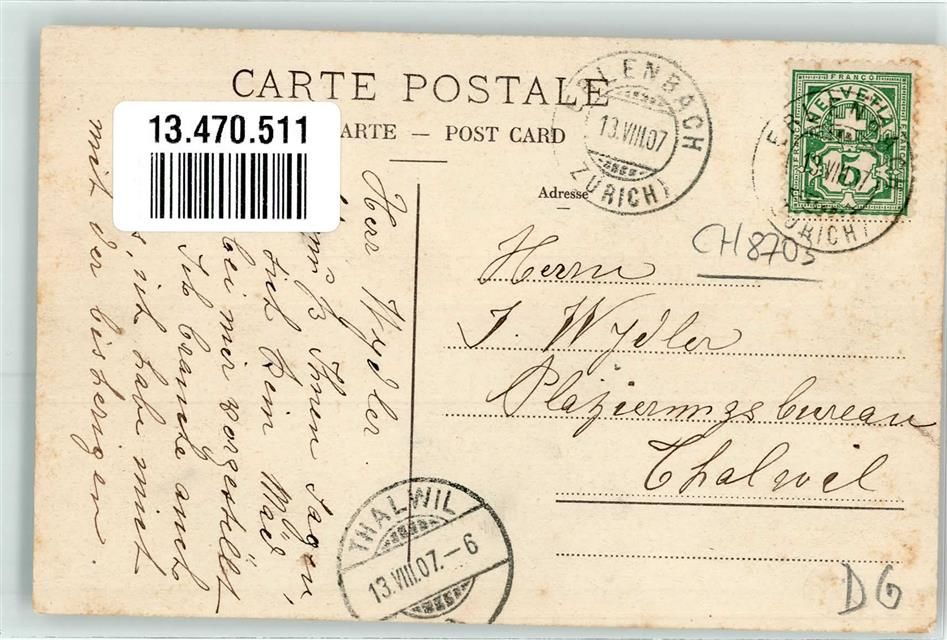 CARTE POSTALE
ARTE — POST CARD
13.470.511
Adresse
ERLENBACH
13.VIII.07
(ZÜRICH)
FRANCO
HELVETIA
5
13.VIII.07
(ZÜRICH)
CH 8703
Herrn
J. Wydler
Plazierungsbureau
Thalwil
Herr Wydler.
muß Ihnen sagen,
sich kein Mäd
bei mir vorgestellt
Ich brauche auch
s, ich habe mich
mit der bisherigen
THALWIL
13.VIII.07.–6
DG